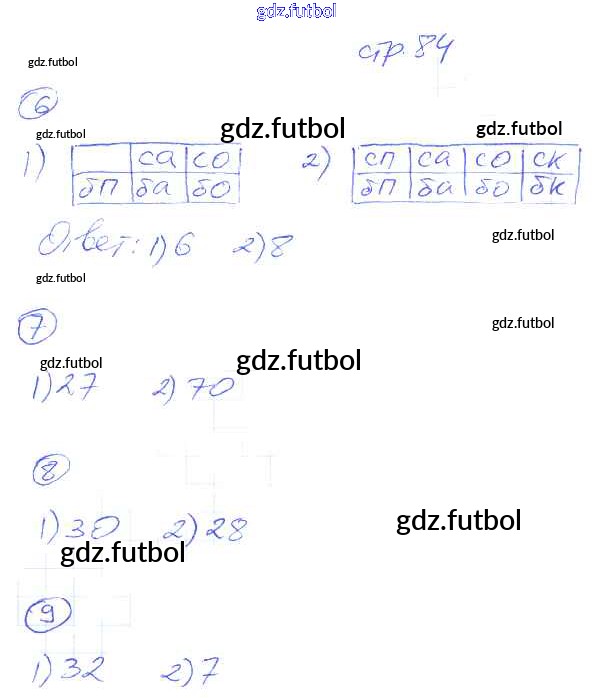 gdz.futbol
стр. 84
gdz.futbol
6
gdz.futbol gdz.futbol gdz.futbol
1) са со 2) сп са со ск
бп ба бо бп ба бо бк
Ответ: 1) 6 2) 8
gdz.futbol
gdz.futbol
7
gdz.futbol
gdz.futbol gdz.futbol
1) 27 2) 70
8
1) 30 2) 28
gdz.futbol
gdz.futbol
9
1) 32 2) 7